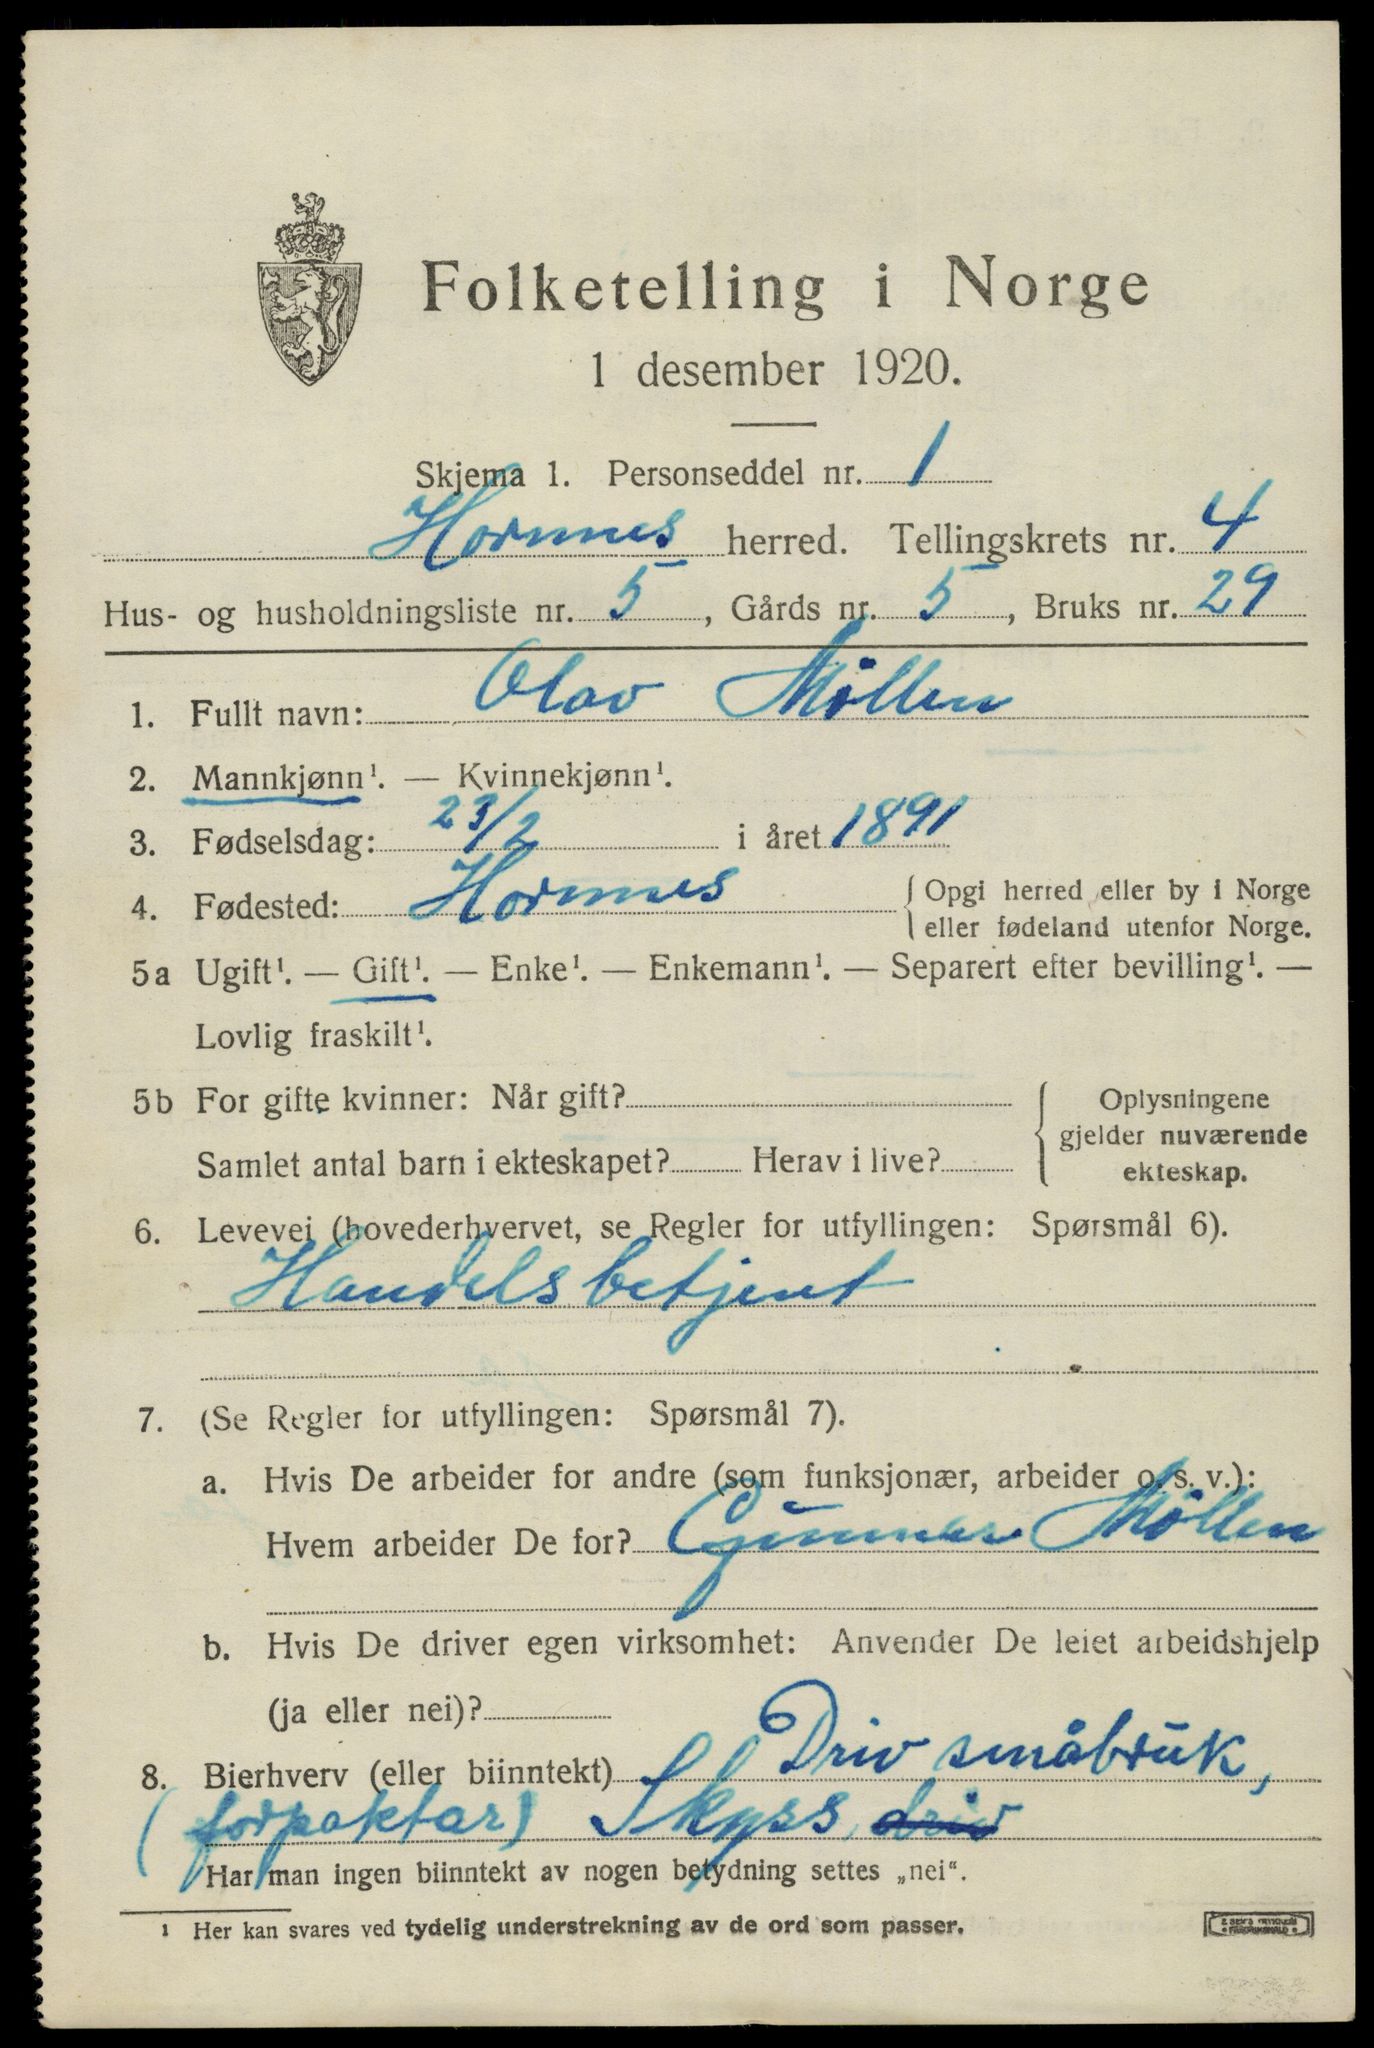 Folketelling i Norge
1 desember 1920.
Skjema 1. Personseddel nr. 1
Hornnes herred. Tellingskrets nr. 4
Hus- og husholdningsliste nr. 5, Gårds nr. 5, Bruks nr. 29
1. Fullt navn: Olav Møllen
2. Mannkjønn¹. — Kvinnekjønn¹.
3. Fødselsdag: 23/2 i året 1891
4. Fødested: Hornnes { Opgi herred eller by i Norge
eller fødeland utenfor Norge.
5a Ugift¹. — Gift¹. — Enke¹. — Enkemann¹. — Separert efter bevilling¹. —
Lovlig fraskilt¹.
5b For gifte kvinner: Når gift? { Oplysningene
gjelder nuværende
Samlet antal barn i ekteskapet? Herav i live?
ekteskap.
6. Levevei (hovederhvervet, se Regler for utfyllingen: Spørsmål 6).
Handelsbetjent
7. (Se Regler for utfyllingen: Spørsmål 7).
a. Hvis De arbeider for andre (som funksjonær, arbeider o. s. v.):
Hvem arbeider De for? Gunnar Møllen
b. Hvis De driver egen virksomhet: Anvender De leiet arbeidshjelp
(ja eller nei)?
8. Bierhverv (eller biinntekt) Driv småbruk,
(forpaktar) Skyss, driv
Har man ingen biinntekt av nogen betydning settes „nei“.
¹ Her kan svares ved tydelig understrekning av de ord som passer.